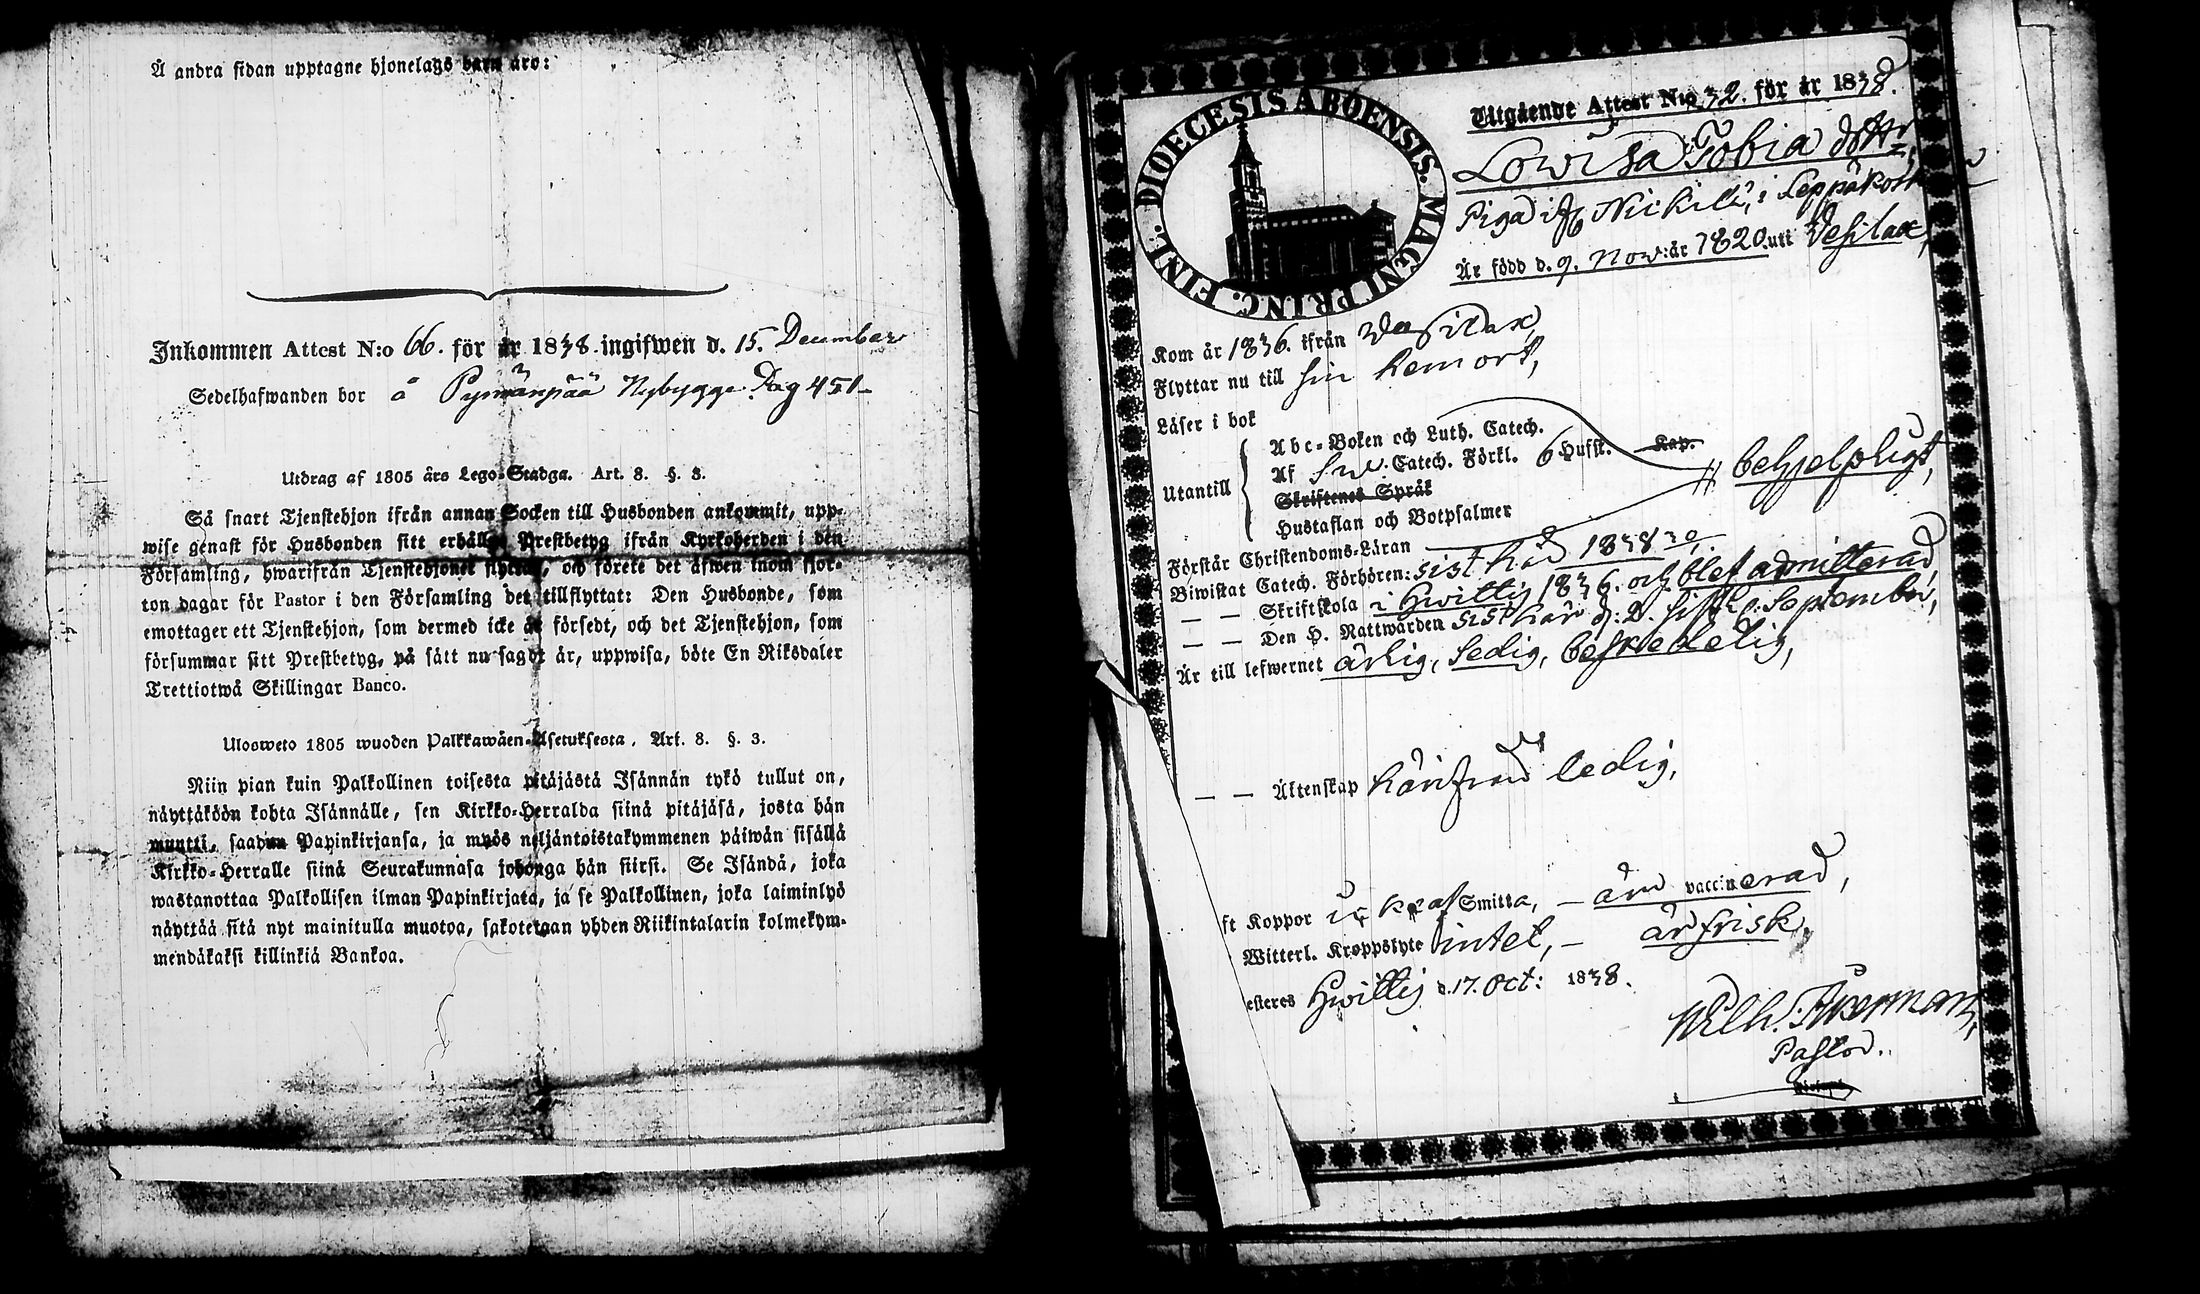 Å andra sidan upptagne hjonelags barn äro:
Inkommen Attest N:o 66. för år 1838. ingifwen d. 15. December
Sedelhafwanden bor å Pynnänpää Nybygge. Pag 451-
Utdrag af 1805 års Lego-Stadga. Art. 8. §. 3.
Så snart Tjenstehjon ifrån annan Socken till Husbonden ankommit, upp-
wise genast för Husbonden sitt erhållne Prestbetyg ifrån Kyrkoherden i den
Församling, hwarifrån Tjenstehjonet flyttat, och förete det äfwen inom fjor-
ton dagar för Pastor i den Församling det tillflyttat: Den Husbonde, som
emottager ett Tjenstehjon, som dermed icke är försedt, och det Tjenstehjon, som
försummar sitt Prestbetyg, på sätt nu sagdt är, uppwisa, böte En Riksdaler
Trettiotwå Skillingar Banco.
Ulosweto 1805 wuoden Palkkawäen-Asetuksesta. Art. 8. §. 3.
Niin pian kuin Palkollinen toisesta pitäjästä Isännän tykö tullut on,
näyttäköön kohta Isännälle, sen Kirkko-Herralda siinä pitäjäsä, josta hän
muutti, saadun Papinkirjansa, ja myös neljäntoistakymmenen päiwän sisällä
Kirkko-Herralle siinä Seurakunnasa johonga hän siirsi. Se Isändä, joka
wastanottaa Palkollisen ilman Papinkirjata, ja se Palkollinen, joka laiminlyö
näyttää sitä nyt mainitulla muotoa, sakotetaan yhden Riikintalarin kolmekym-
mendäkaksi killinkiä Bankoa.
DIOECESIS ABOENSIS. MAGNI PRINC. FINL.
Utgående Attest N:o 32. för år 1838.
Lowisa Tobia dotter,
Piga ifr. Nickilä, i Leppäkosk
Är född d. 9. Now: år 1820. uti Vesilax,
Kom år 1836. ifrån Vesilax,
Flyttar nu till sin hemort,
Läser i bok
Utantill
Abc-Boken och Luth. Catech.
Af Sw. Catech. Förkl. 6 Hufst. Kap.
Skriftenes Språk
Hustaflan och Botpsalmer
behjelpligt,
Förstår Christendoms-Läran
Biwistat Catech. Förhören: sist här 1838
— — Skriftskola i Hwittis 1836. och blef admitterad,
— — Den H. Nattwarden sist här September,
Är till lefwernet ärlig, sedig, beskedelig,
— — Äktenskap härifrån ledig,
ft Koppor Smitta, — är vaccinerad,
Witterl. Kroppslyte intet, — är frisk,
esteres Hwittis d. 17. Oct: 1838.
Wilh. Åkerman,
Pastor.